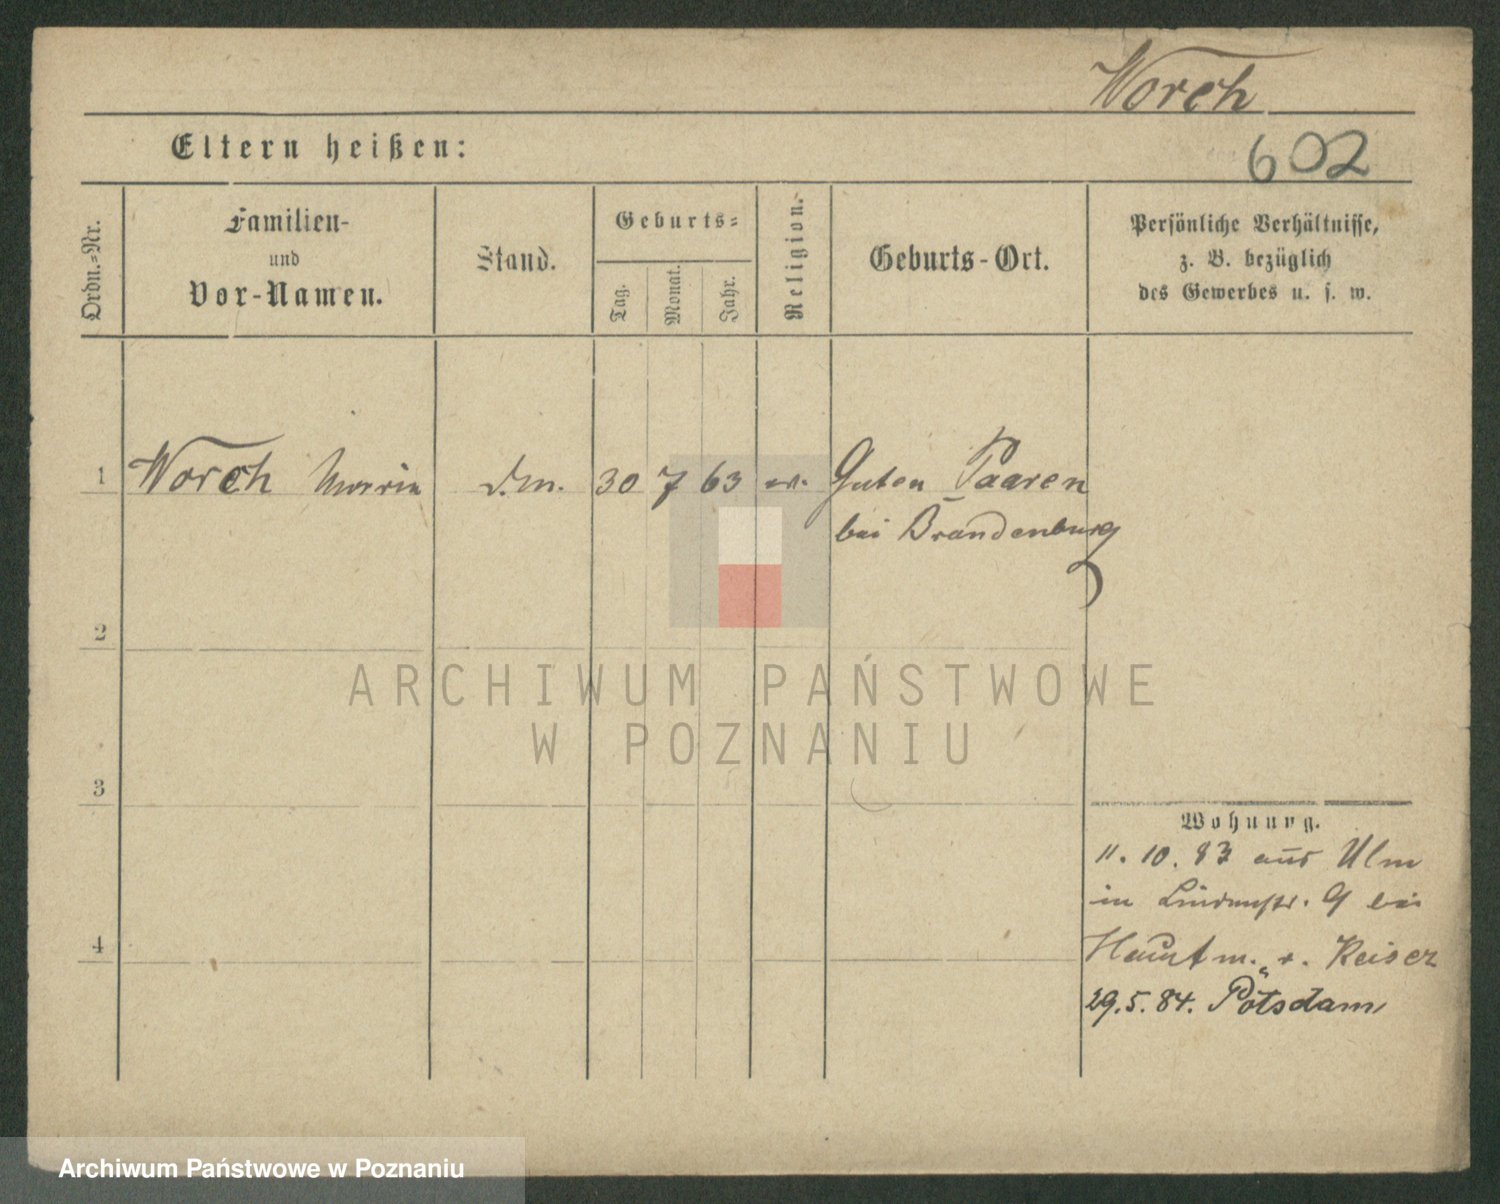 Worch
Eltern heißen:
602
Ordn.-Nr.
Familien-
und
Vor-Namen.
Stand.
Geburts-
Tag.
Monat.
Jahr.
Religion.
Geburts-Ort.
Persönliche Verhältnisse,
z. B. bezüglich
des Gewerbes u. s. w.
1 Worch d.m. 30 7 63 ev. Guten Paaren
bei Brandenburg
2
ARCHIWUM PAŃSTWOWE
W POZNANIU
3
Wohnung.
11. 10. 83 aus Ulm
in Lindenstr. 9 bei
4
Hauptm. v. Keiser
29.5.84. Potsdam
Archiwum Państwowe w Poznaniu